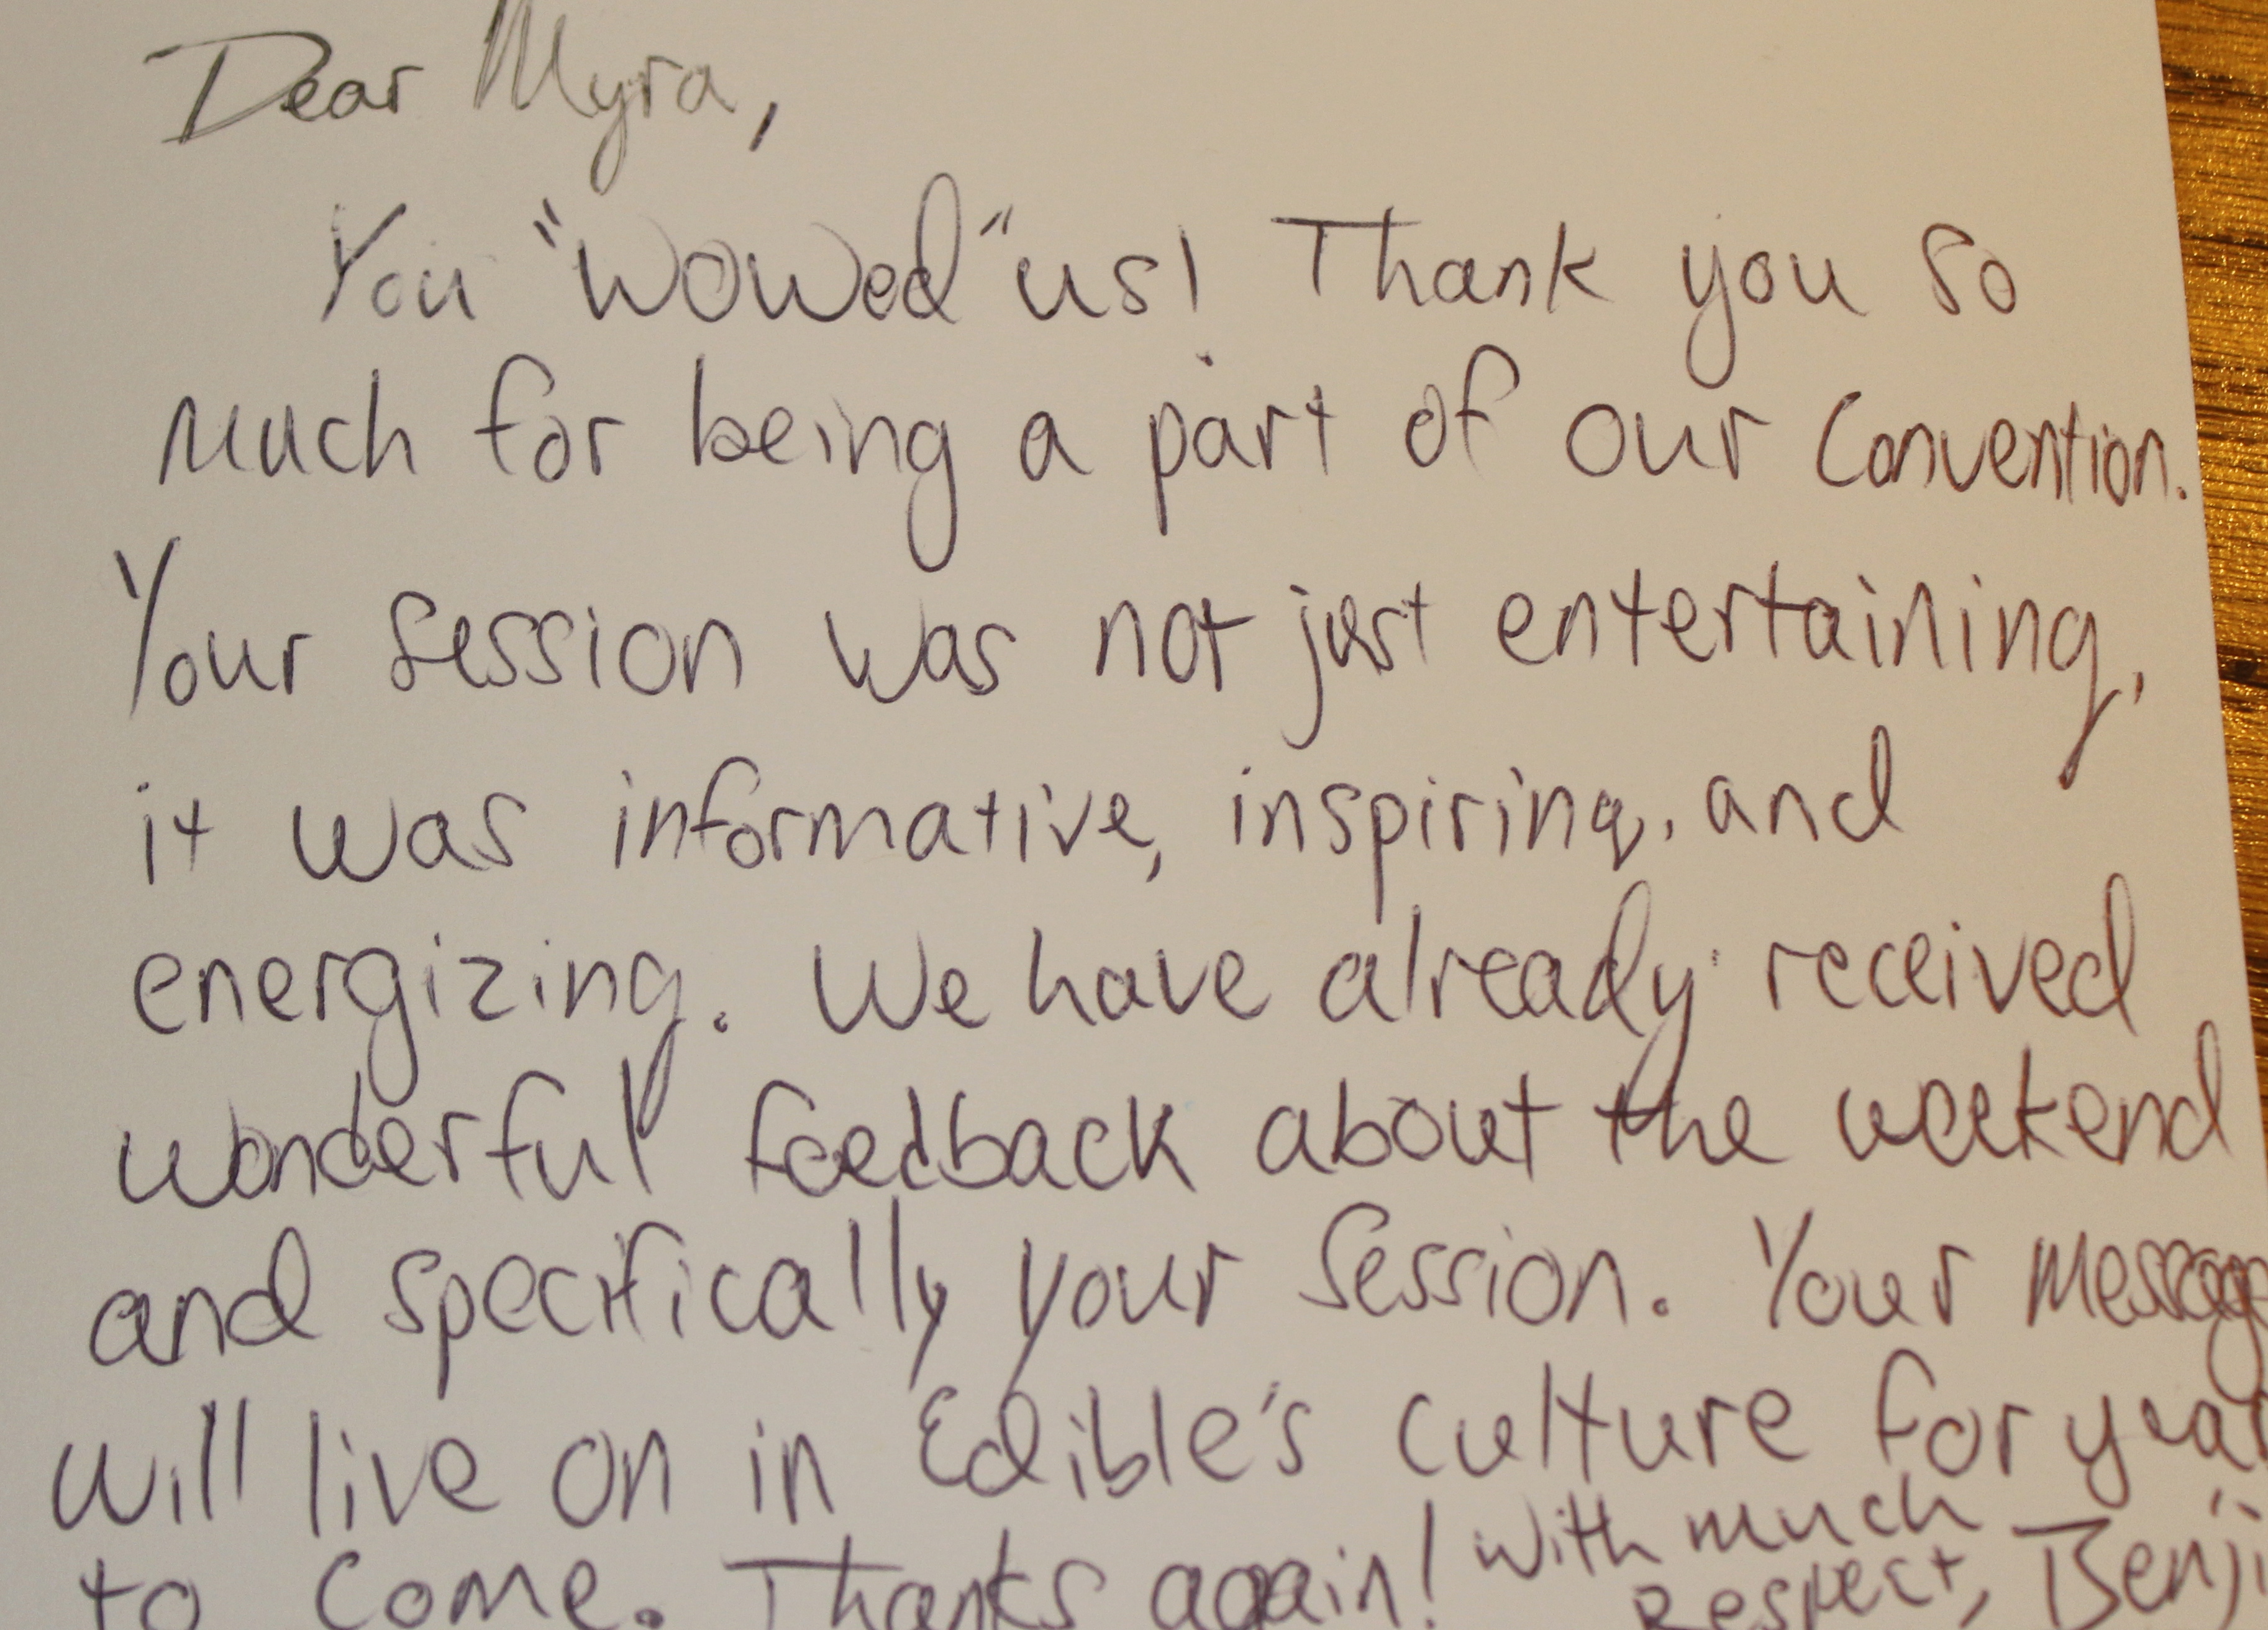 Dear Myra,
You "Wowed" us! Thank you so
much for being a part of our Convention.
Your session was not just entertaining,
it was informative, inspiring, and
energizing. We have already received
wonderful feedback about the weekend
and specifically your session. Your message
will live on in Edible's culture for year
to come. Thanks again! With much
Respect, Benji